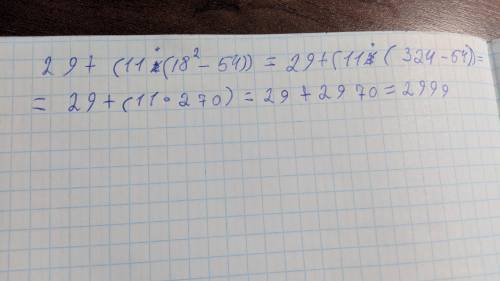 29+(11·(18²-54))=29+(11·(324-54))=
=29+(11·270)=29+2970=2999